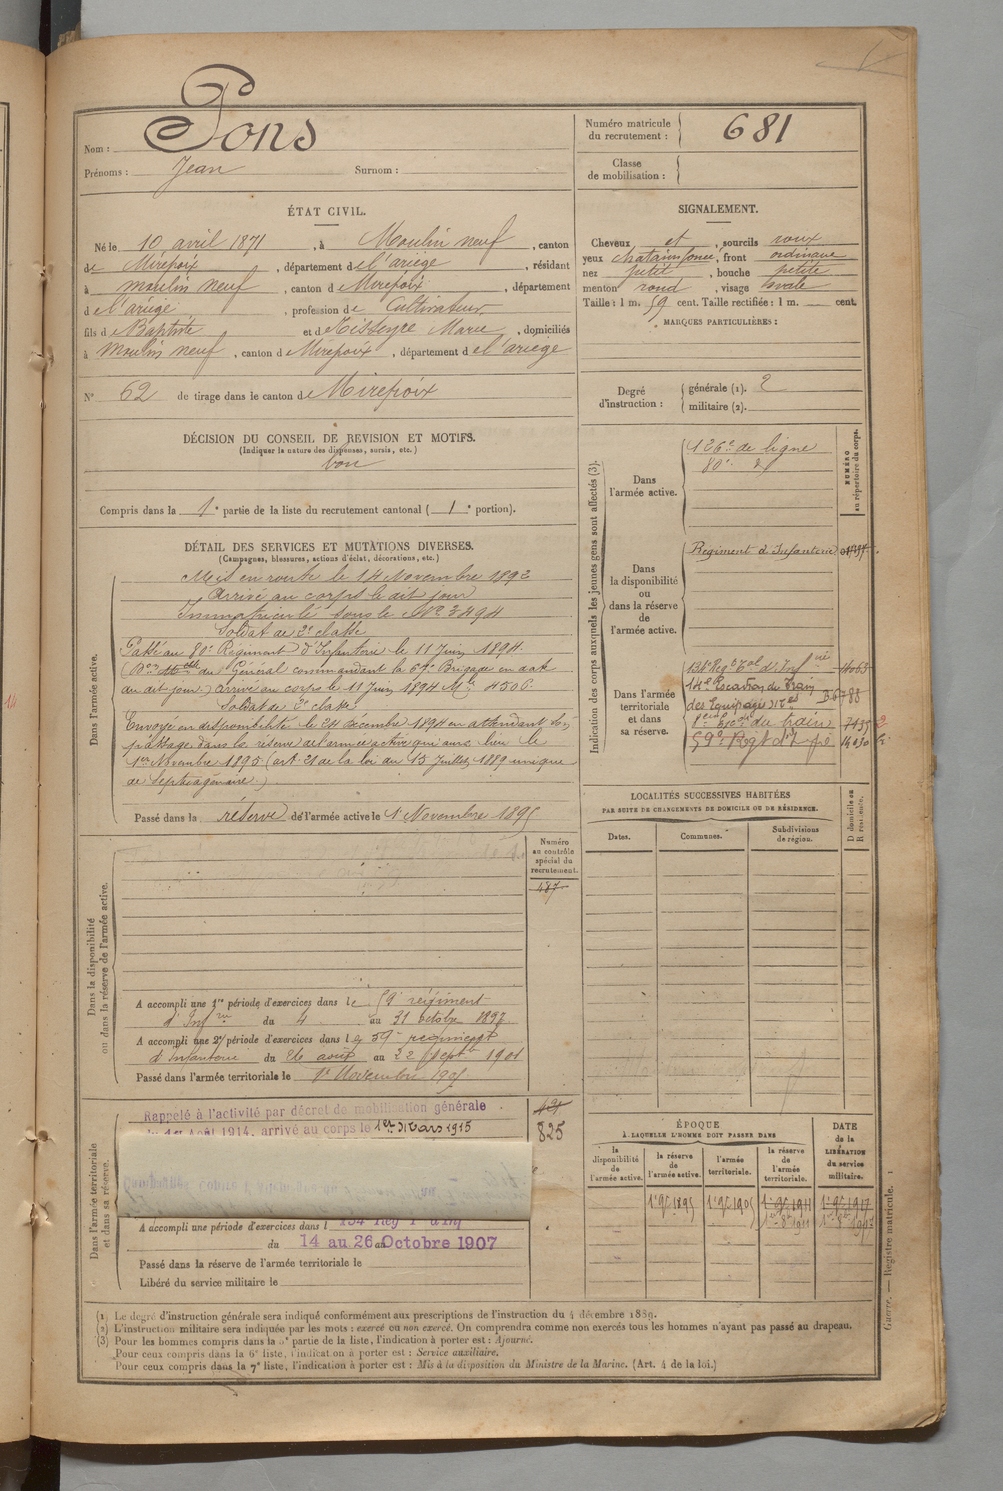 Nom : Pons
Prénoms : Jean Surnom :
Numéro matricule du recrutement : 681
Classe de mobilisation :
ÉTAT CIVIL.
Né le 10 avril 1871, à Moulin neuf, canton
de Mirepoix, département de l'ariège, résidant
à moulin neuf, canton de Mirepoix, département
de l'ariège, profession de Cultivateur
fils de Baptiste et de Tisseyre Marie, domiciliés
à Moulin neuf, canton de Mirepoix, département de l'ariège
N° 62 de tirage dans le canton de Mirepoix
SIGNALEMENT.
Cheveux et, sourcils roux
yeux chatains foncé, front ordinaire
nez petit, bouche petite
menton rond, visage ovale
Taille : 1 m. 59 cent. Taille rectifiée : 1 m. cent.
MARQUES PARTICULIÈRES :
Degré d'instruction : générale (1). 2
militaire (2).
DÉCISION DU CONSEIL DE REVISION ET MOTIFS.
(Indiquer la nature des dispenses, sursis, etc.)
bon
Compris dans la 1e partie de la liste du recrutement cantonal (1e portion).
DÉTAIL DES SERVICES ET MUTATIONS DIVERSES.
(Campagnes, blessures, actions d'éclat, décorations, etc.)
Dans l'armée active.
Mis en route le 14 Novembre 1892
Arrivé au corps le dit jour
Immatriculé sous le N° 3494
Soldat de 2e classe
Passé au 80e Régiment d'Infanterie le 11 Juin 1894
du Général commandant la 67e Brigade en date
du dit jour) arrivé au corps le 11 Juin 1894 Mle 4506
Soldat de 2e classe
Envoyé en disponibilité le 24 décembre 1894 en attendant son
passage dans la réserve de l'armée active qui aura lieu le
1er Novembre 1895 (art. 21 de la loi du 15 Juillet 1889 unique
de septuagénaire.)
Passé dans la réserve de l'armée active le 1r Novembre 1895
Dans la disponibilité ou dans la réserve de l'armée active.
Numéro au contrôle spécial du recrutement.
487
A accompli une 1re période d'exercices dans le 59e régiment
d'Infrie du 4 au 31 octobre 1897
A accompli une 2e période d'exercices dans le 59e regiment
d'Infanterie du 26 août au 22 Septre 1901
Passé dans l'armée territoriale le 1r Novembre 1905
Dans l'armée territoriale et dans sa réserve.
Rappelé à l'activité par décret de mobilisation générale
du 1er Août 1914, arrivé au corps le 1er Mars 1915
825
A accompli une période d'exercices dans l 134 Reg T d'Inf
du 14 au 26 au Octobre 1907
Passé dans la réserve de l'armée territoriale le
Libéré du service militaire le
Indication des corps auxquels les jeunes gens sont affectés (3).
NUMÉRO au répertoire du corps.
Dans l'armée active.
126e de ligne
80e d°
Dans la disponibilité ou dans la réserve de l'armée active.
Regiment d'Infanterie
Dans l'armée territoriale et dans sa réserve.
134e Regt Tal d'Infrie
14e Escadron du Train
des Equipages
788
du train 7435
59e Régt d'Infie
LOCALITÉS SUCCESSIVES HABITÉES
PAR SUITE DE CHANGEMENTS DE DOMICILE OU DE RÉSIDENCE.
Dates. Communes. Subdivisions de région. D domicile ou R résidence.
ÉPOQUE
À LAQUELLE L'HOMME DOIT PASSER DANS
DATE de la LIBÉRATION du service militaire.
la disponibilité de l'armée active. la réserve de l'armée active. l'armée territoriale. la réserve de l'armée territoriale.
1r 9bre 1895 1r 9bre 1905 1r 9bre 1911 1r 9bre 1917
(1) Le degré d'instruction générale sera indiqué conformément aux prescriptions de l'instruction du 4 décembre 1889.
(2) L'instruction militaire sera indiquée par les mots : exercé ou non exercé. On comprendra comme non exercés tous les hommes n'ayant pas passé au drapeau.
(3) Pour les hommes compris dans la 5e partie de la liste, l'indication à porter est : Ajourné.
Pour ceux compris dans la 6e liste, l'indication à porter est : Service auxiliaire.
Pour ceux compris dans la 7e liste, l'indication à porter est : Mis à la disposition du Ministre de la Marine. (Art. 4 de la loi.)
Guerre. — Registre matricule.